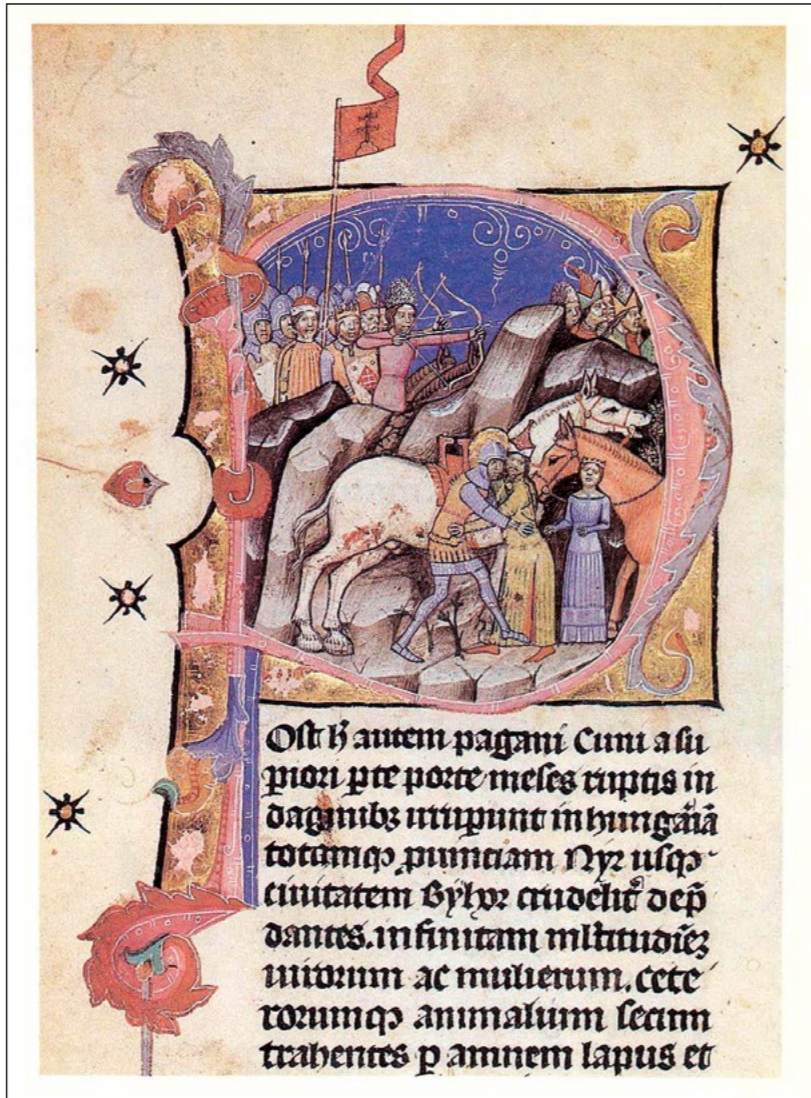 Ost h̄ autem pagani Cuni a su
piori p̱te porte meses ruptis in
daginibꝫ irrupunt in hungaͣiā
totamqꝫ ꝓuinciam Nyr usqꝫ
ciuitatem Byhor crudelit᷑ dep̄
dantes. infinitam ml̄titudiēꝫ
uirorum ac mulierum. cete
rorumqꝫ animalium secum
trahentes ꝑ amnem lapus et